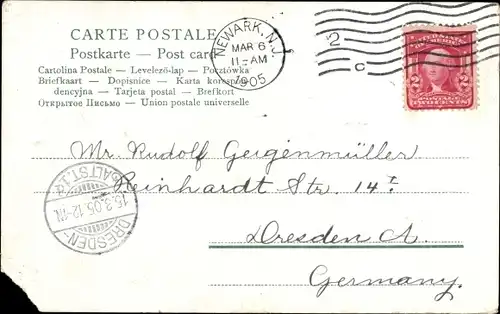 CARTE POSTALE
Postkarte — Post card
Cartolina Postale — Levelező-lap — Pocztówka
Briefkaart — Dopisnice — Karta korespon-
dencyjna — Tarjeta postal — Brefkort
Открытое Письмо — Union postale universelle
NEWARK, N.J.
MAR 6
11-AM
1905
2
C
2 2
POSTAGE
TWO CENTS
Mr. Rudolf Geigenmüller
Reinhardt Str. 14 I
Dresden A.
Germany.
DRESDEN-
15.3.05.12-1N.
ALTST.